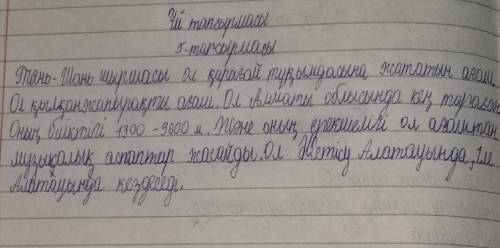 Үй тапсырмасы
5-тапсырмасы
Тянь-Шань шыршасы ол қарағай тұқымдасына жататын ағаш.
Ол қылқанжапырақты ағаш. Ол Алматы облысында кең тараған
Оның биіктігі 1300-9600 м. Және оның ерекшелігі ол ағаштан
музыкалық аспаптар жасайды. Ол Жетісу Алатауында,
Алатауында кездеседі.